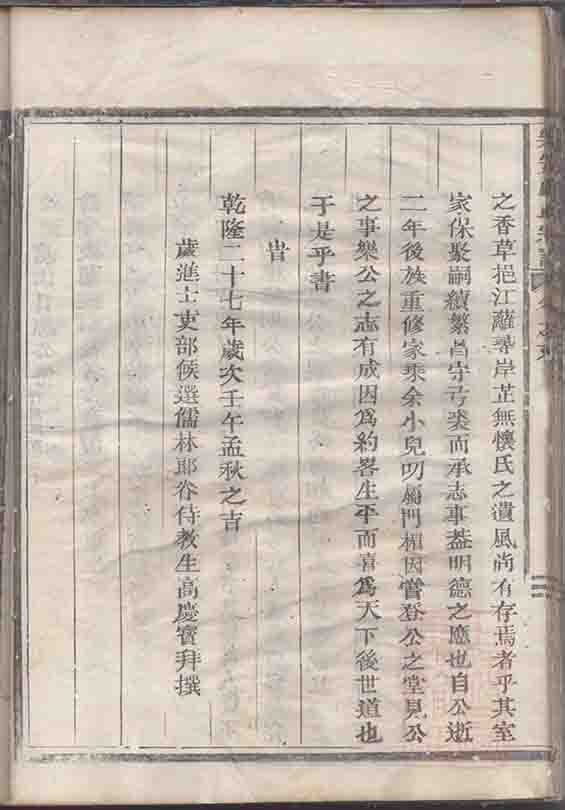 之香草挹江蘺尋岸芷無懷氏之遺風尚有存焉者乎其室
家保聚嗣續繁昌守弓裘而承志事葢明德之應也自公逝
二年後族重修家乘余小兒叨廁門楣因嘗登公之堂見公
之事樂公之志有成因爲約畧生平而喜爲天下後世道也
于是乎書
旹
乾隆二十七年歲次壬午孟秋之吉
歲進士吏部候選儒林郎眷侍教生高慶賓拜撰